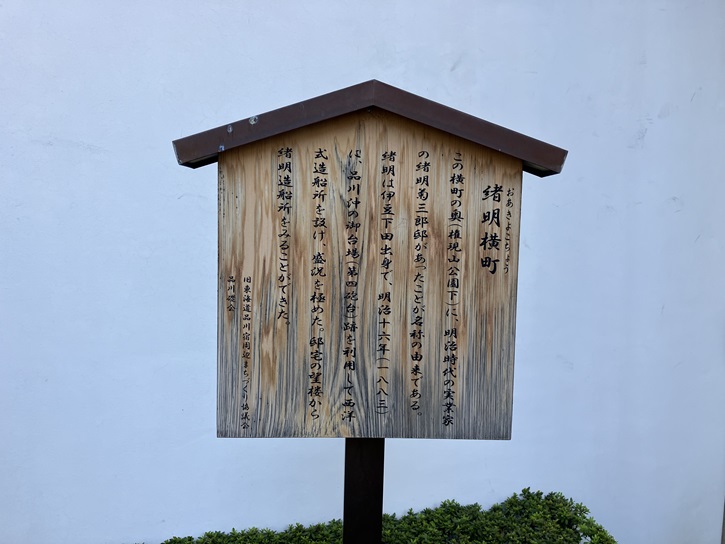 おあきよこちょう
緒明横町
この横町の奥(権現山公園下)に、明治時代の実業家
の緒明菊三郎邸があったことが名称の由来である。
緒明は伊豆下田出身で、明治十六年(一八八三)
に、品川沖の御台場(第四砲台)跡を利用して西洋
式造船所を設け、盛況を極めた。邸宅の望楼から
緒明造船所をみることができた。
旧東海道品川宿周辺まちづくり協議会
品川碑会